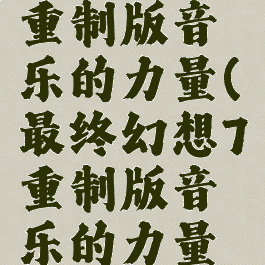 重制版音
乐的力量(
最终幻想7
重制版音
乐的力量